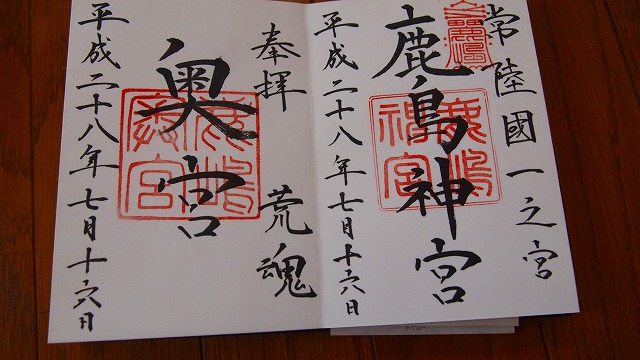 常陸國一之宮
鹿島神宮
平成二十八年七月十六日
奉拝 荒魂
奥宮
平成二十八年七月十六日
鹿嶋神宮
鹿嶋奥宮